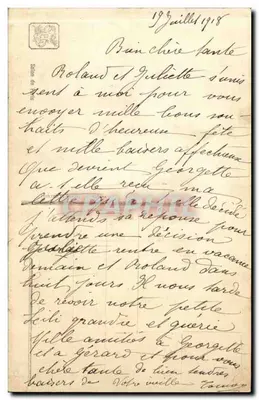 19 Juillet 1918
Bien chère tante
Roland et Juliette s'unis
sent à moi pour vous
envoyer mille bons sou
haits d'heureuse fête
et mille baisers affectueux
Que devient Georgette
a t elle reçu ma
décidé
J'attends sa réponse pour
prendre une décision
rentre en vacance
demain et Roland dans
huit jours Il nous tarde
de revoir notre petite
grandie et guérie
Mille amitiés à Georgette
et à Gérard et pour vous
chère tante de bien tendres
baisers de Votre vieille